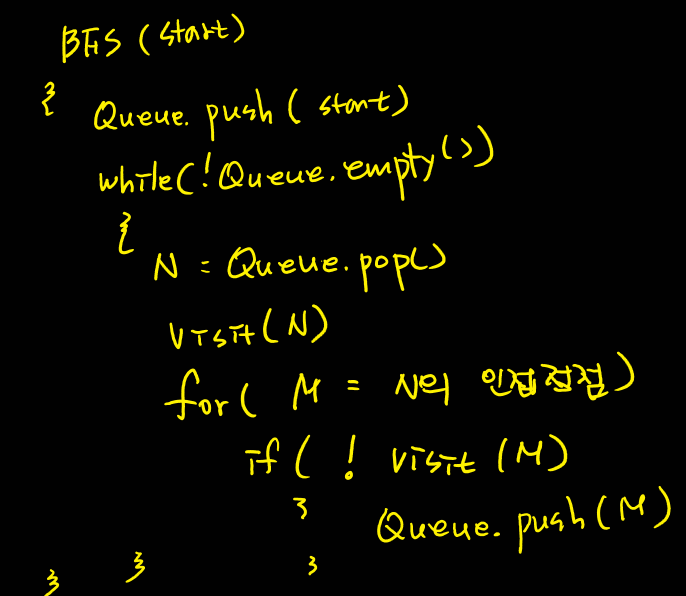 BFS (start)
{ Queue. push ( start)
while(!Queue.empty())
{
N = Queue.pop()
visit(N)
for( M = N의 인접접점)
if ( ! visit (M)
} Queue. push (M)
} } }